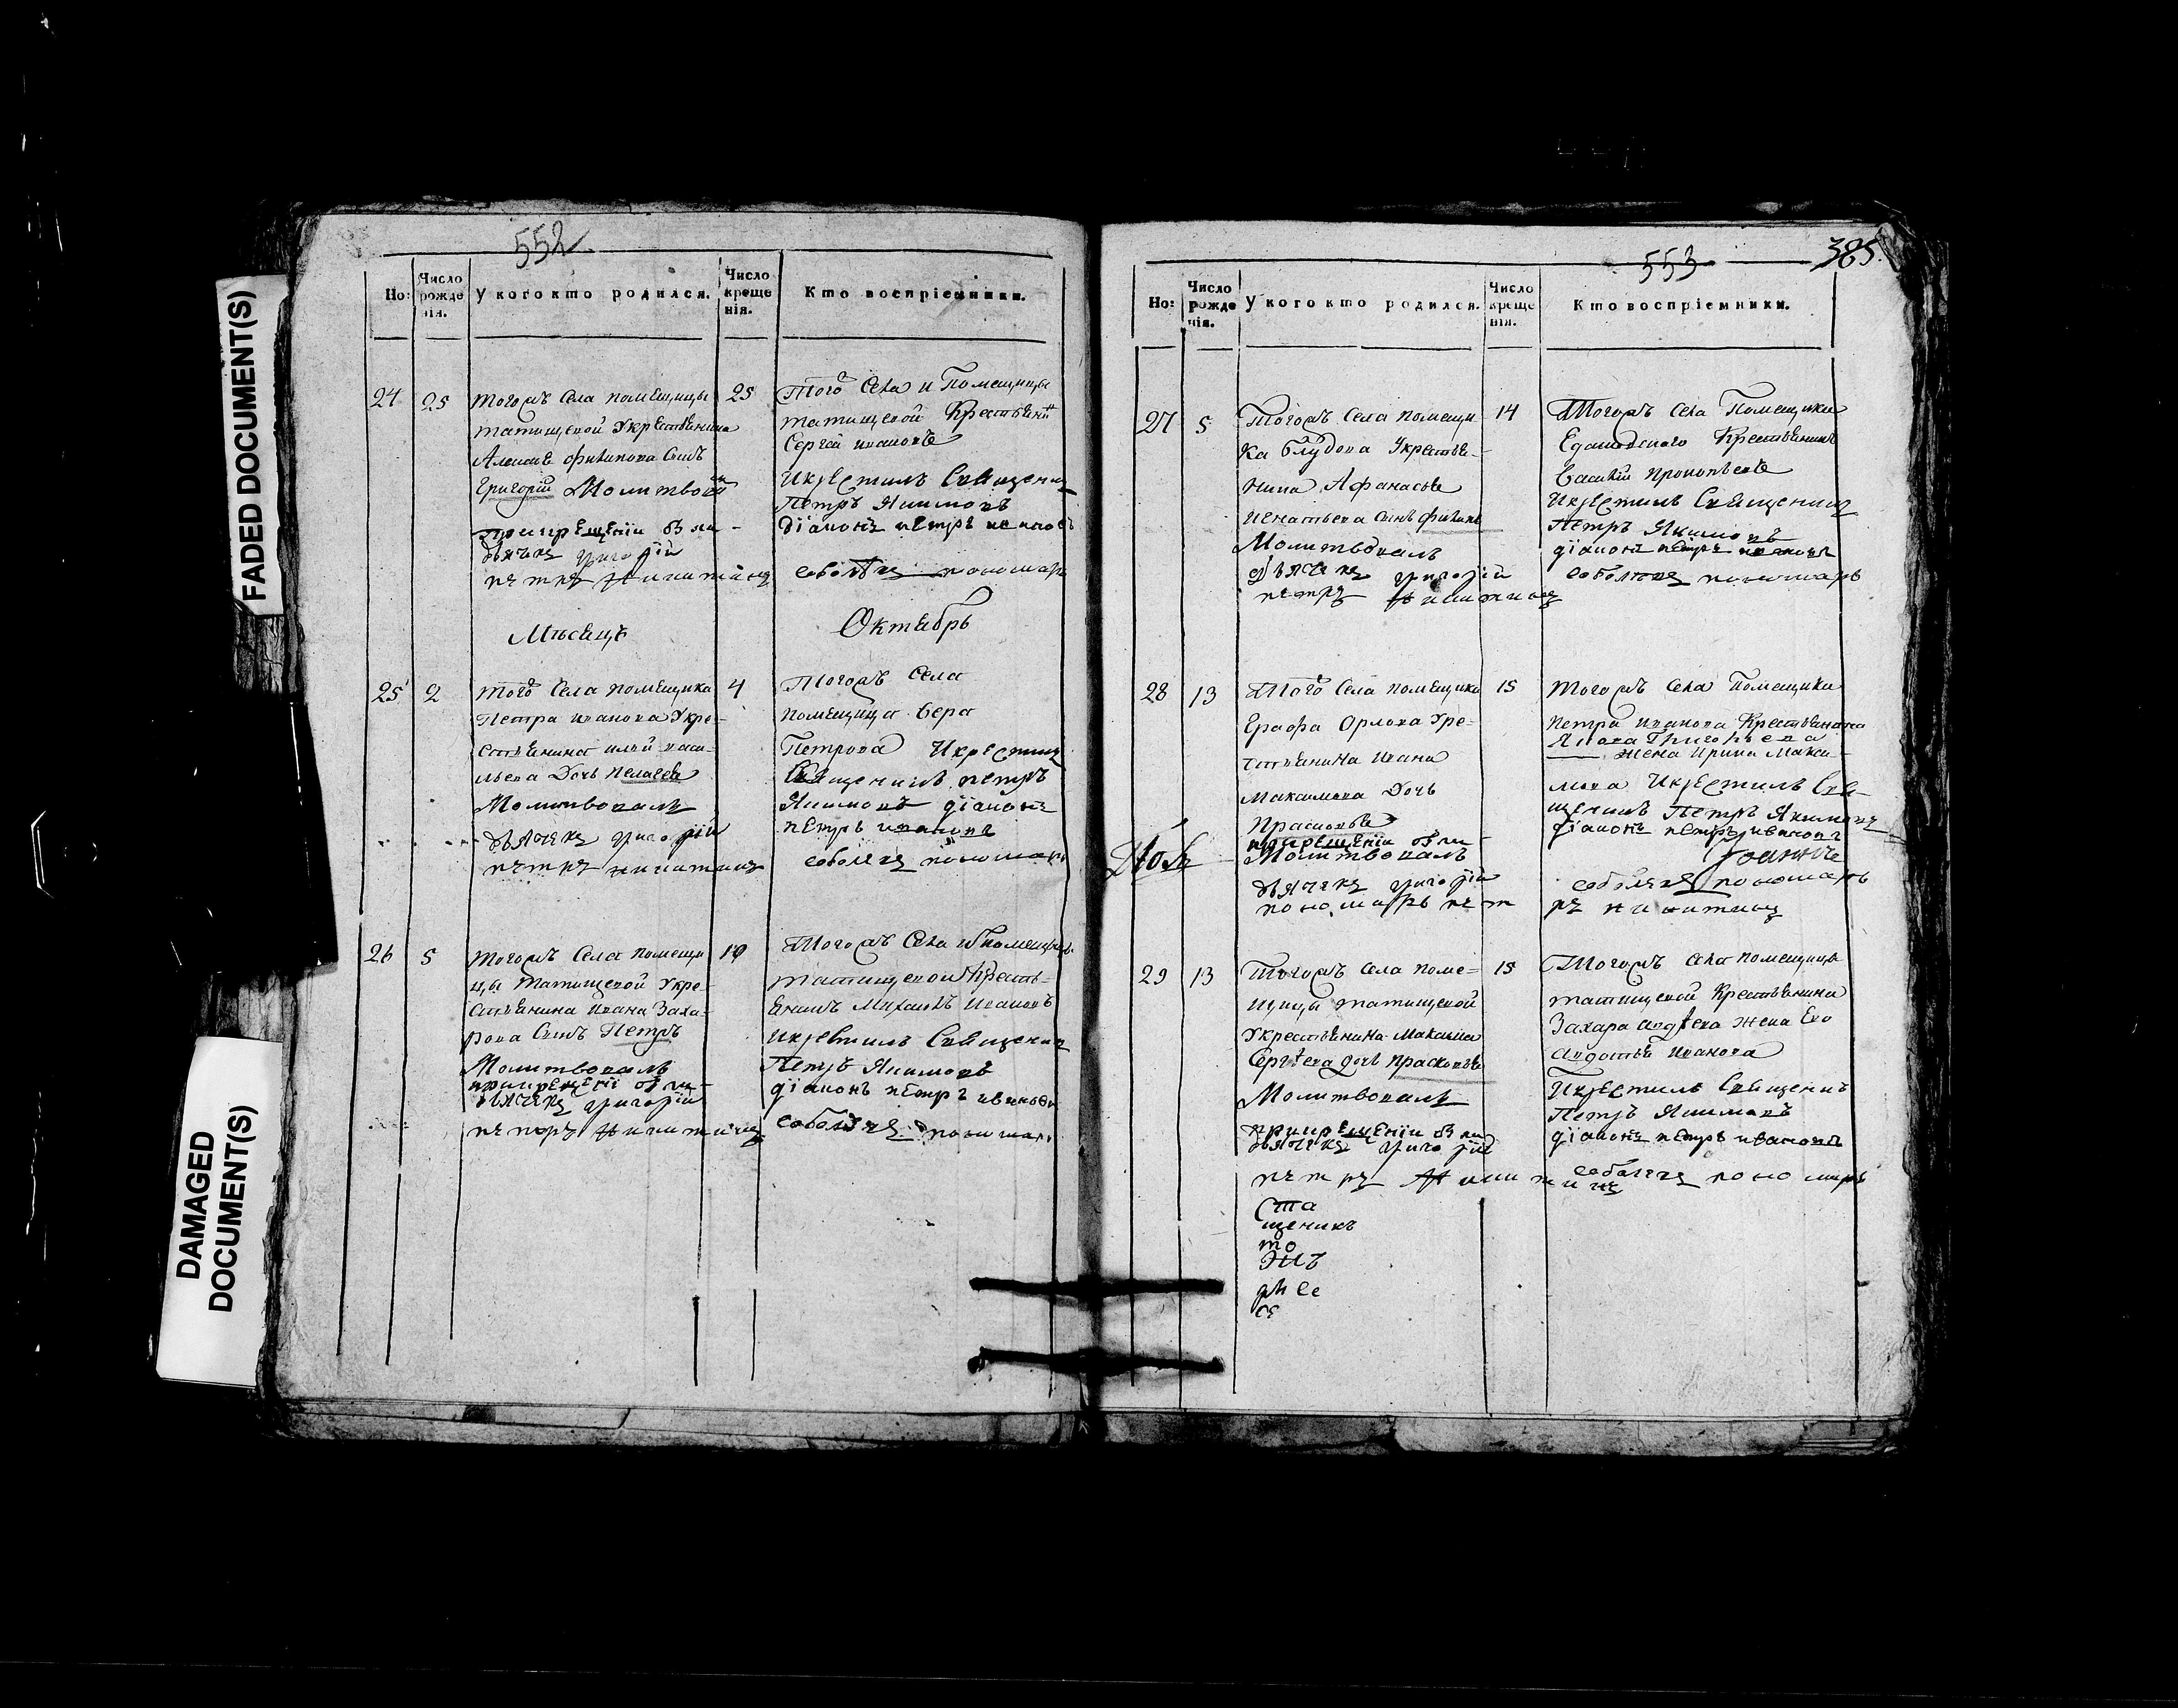 FADED DOCUMENT(S)
DAMAGED
DOCUMENT(S)
552
Но:
Число
рожде
нія.
У кого кто родился.
Число
креще
нія.
Кто воспріемники.
24
25
тогожъ села помещицы
татищевой Укрестьянина
Филипова Сынъ
Григорий Молитвовалъ
дьячекъ григорій
петръ никитинъ
25
Того Села и Помещицы
татищевой Крестьянинъ
Сергей ивановъ
Икрестилъ Священникъ
Петръ Якимовъ
діаконъ петръ ивановъ
соболевъ пономарь
Месяцъ
Октябрь
25
2
того Села помещика
Петра иванова Укре-
стьянина васи-
льева Дочь пелагея
Молитвовалъ
дьячекъ григорій
петръ никитинъ
4
Тогожъ Села
помещица вера
Петрова Икрестилъ
Священникъ петръ
Якимовъ діаконъ
петръ ивановъ
соболевъ пономарь
26
5
тогожъ Села помещи
цы татищевой Укре-
стьянина ивана Заха-
рова Сынъ Петръ
Молитвовалъ
дьячекъ григорій
петръ никитинъ
10
Тогожъ Села помещицы
татищевой Кресть-
енинъ Михаилъ ивановъ
Икрестилъ Священникъ
Петръ Якимовъ
діаконъ петръ ивановъ
соболевъ пономарь
553
385.
Но:
Число
рожде
нія.
У кого кто родился.
Число
креще
нія.
Кто воспріемники.
27
5
Тогожъ Села помещи
ка блудова Укрестья-
нина Афанасья
игнатьева сынъ филипъ
Молитвовалъ
дьячекъ григорій
петръ никитинъ
14
Тогожъ Села Помещика
Крестьянинъ
Василій прокопьевъ
Икрестилъ Священникъ
Петръ Якимовъ
діаконъ петръ ивановъ
соболевъ пономарь
28
13
Того Села помещика
Графа Орлова Укре-
стьянина ивана
Максимова Дочь
Прасковья
Молитвовалъ
дьячекъ григорій
пономарь пет
15
тогожъ села Помещика
петра иванова Крестьянина
Якова Григорьева
жена ирина Макси-
мова Икрестилъ Свя-
щенникъ Петръ Якимовъ
діаконъ петръ ивановъ
соболевъ пономарь
ръ никитинъ
29
13
Тогожъ села поме-
щицы татищевой
Укрестьянина Максима
Сергеева дочь прасковья
Молитвовалъ
дьячекъ григорій
петръ никитинъ
15
Тогожъ села помещицы
татищевой Крестьянина
Захара авдеева жена Его
авдотья иванова
Икрестилъ Священикъ
Петръ Якимовъ
діаконъ петръ ивановъ
соболевъ пономарь
Ста
щеникъ
то